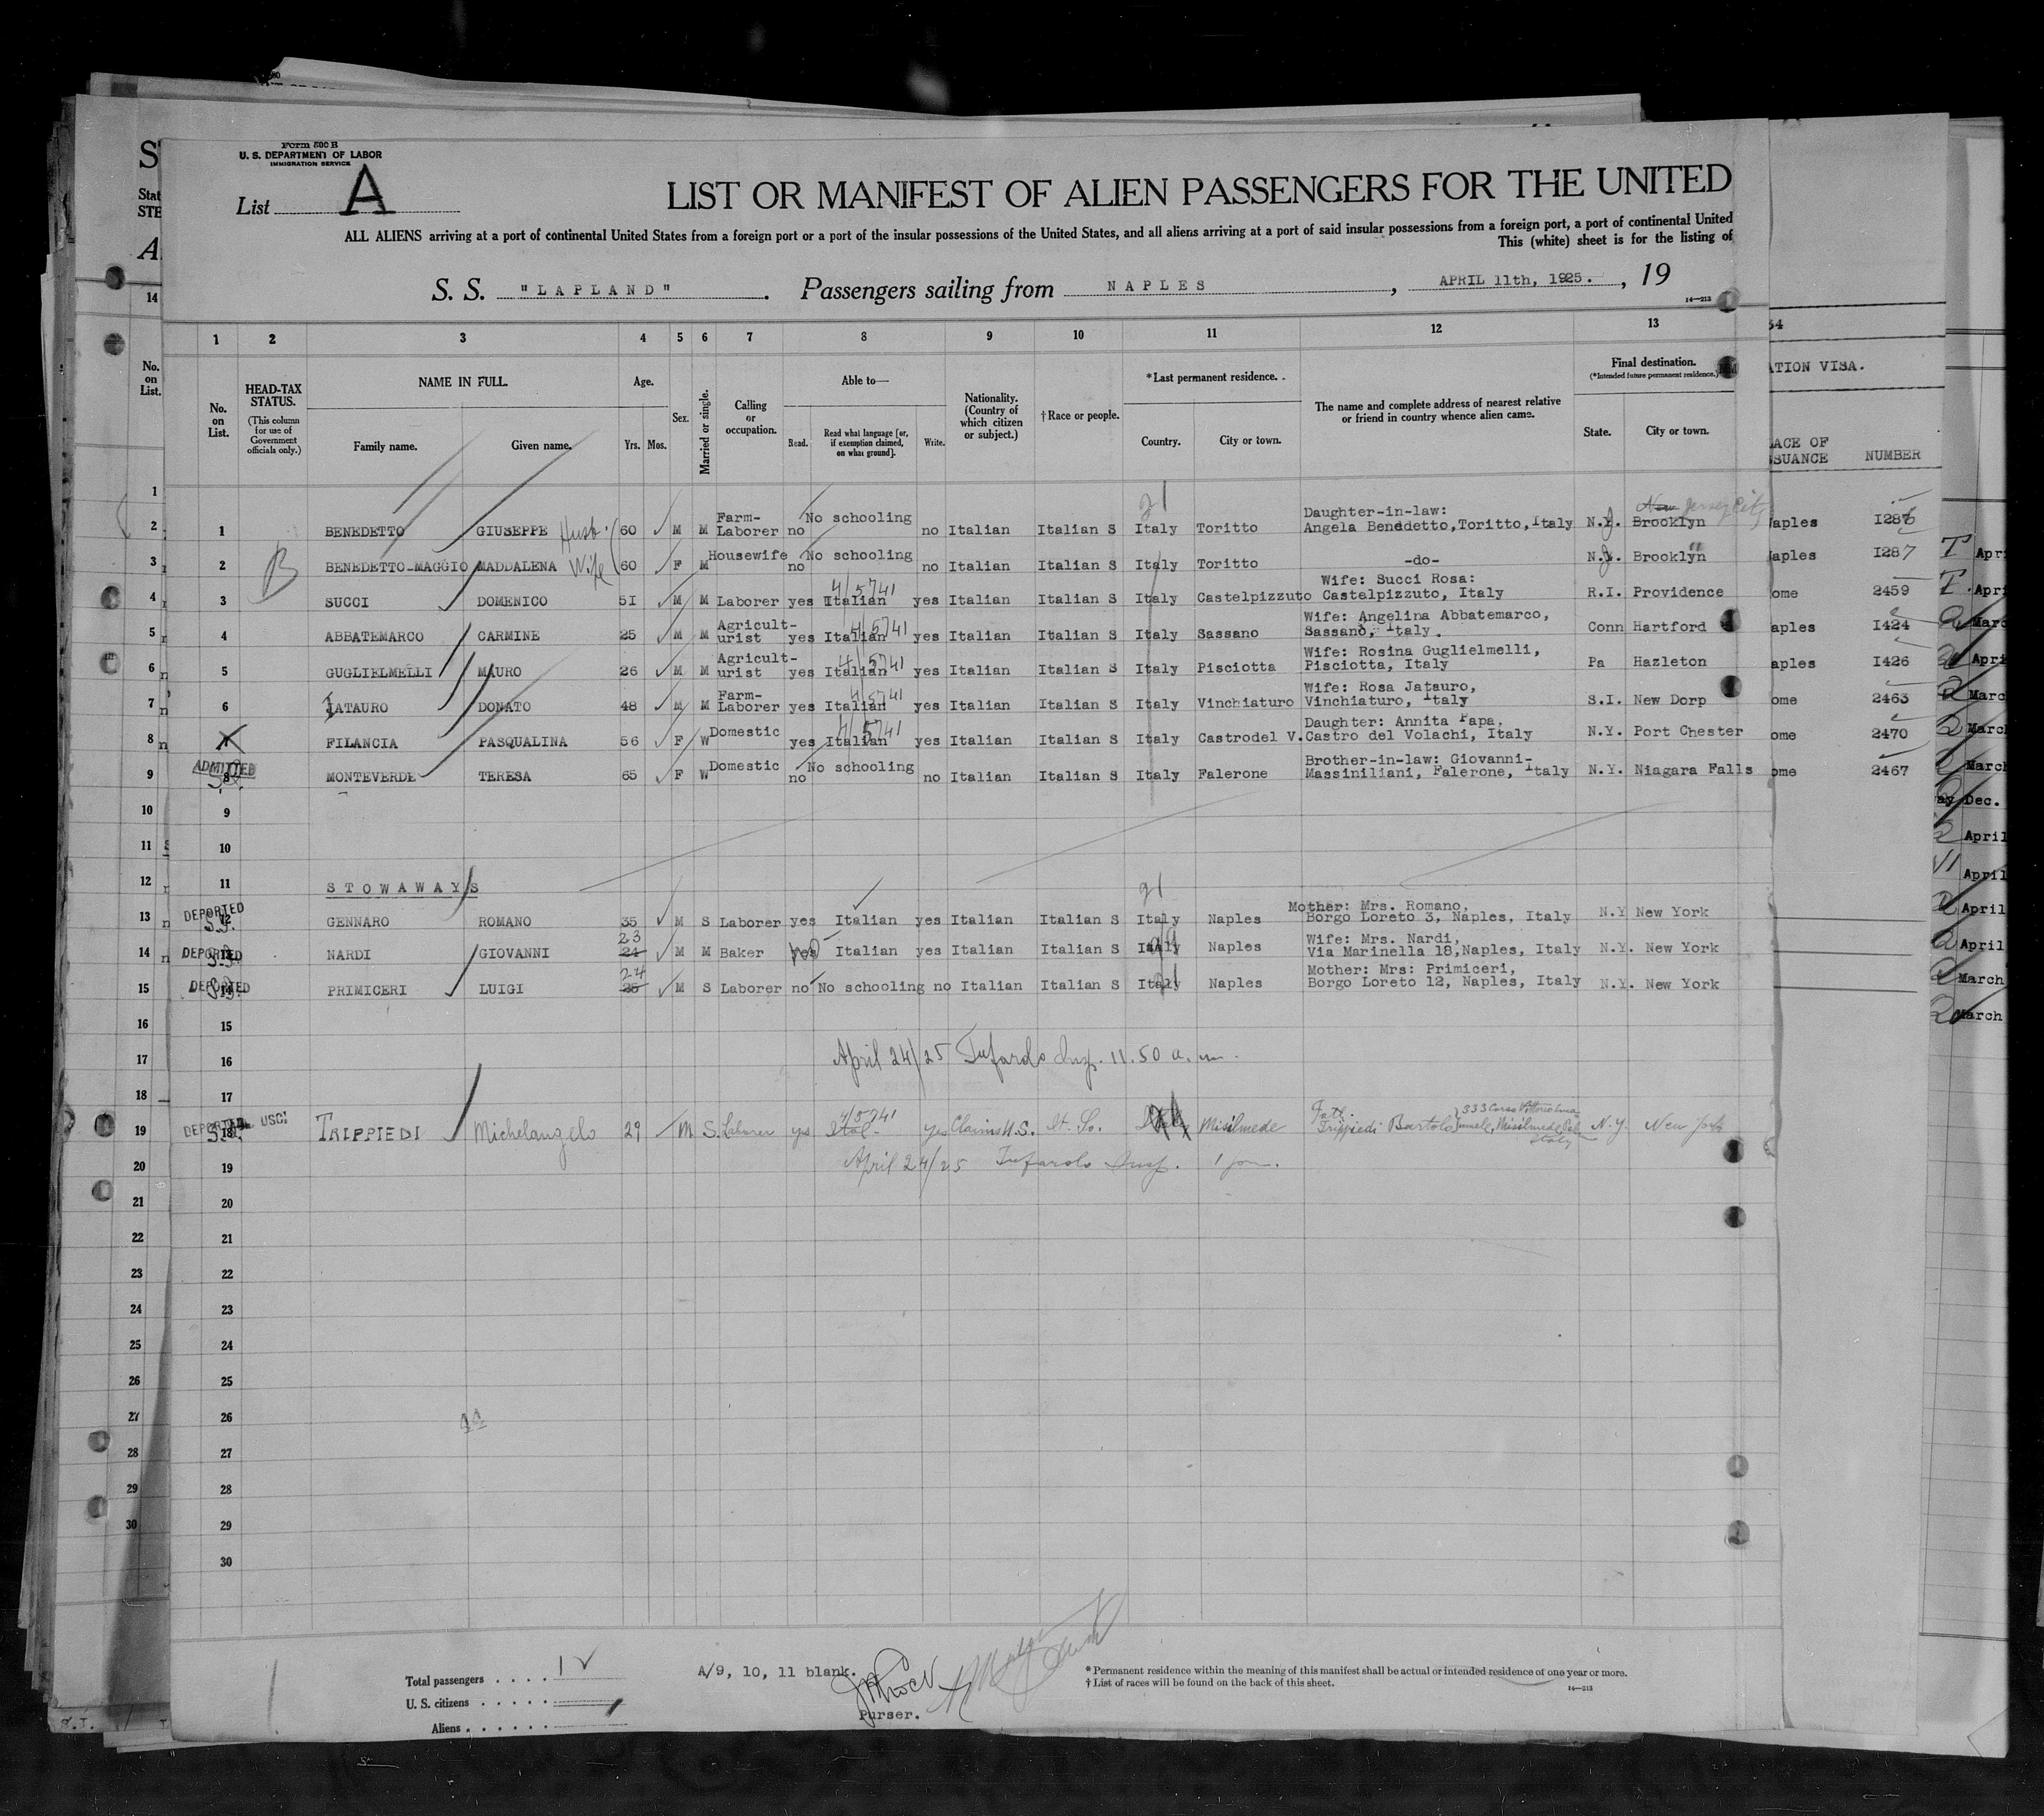 Form 500 B
U. S. DEPARTMENT OF LABOR
IMMIGRATION SERVICE
List A
LIST OR MANIFEST OF ALIEN PASSENGERS FOR THE UNITED
ALL ALIENS arriving at a port of continental United States from a foreign port or a port of the insular possessions of the United States, and all aliens arriving at a port of said insular possessions from a foreign port, a port of continental United
This (white) sheet is for the listing of
S. S. "LAPLAND". Passengers sailing from NAPLES, APRIL 11th, 1925., 19
14—213
1 2 3 4 5 6 7 8 9 10 11 12 13
No. on List.
HEAD-TAX STATUS.
(This column for use of Government officials only.)
NAME IN FULL.
Family name. Given name.
Age.
Yrs. Mos.
Sex.
Married or single.
Calling or occupation.
Able to—
Read. Read what language [or, if exemption claimed, on what ground]. Write.
Nationality. (Country of which citizen or subject.)
†Race or people.
*Last permanent residence.
Country. City or town.
The name and complete address of nearest relative or friend in country whence alien came.
Final destination.
(*Intended future permanent residence.)
State. City or town.
ATION VISA.
ACE OF SUANCE NUMBER
1 BENEDETTO GIUSEPPE Husb. 60 M M Farm-Laborer no No schooling no Italian Italian S Italy Toritto Daughter-in-law: Angela Benedetto, Toritto, Italy N.J. Brooklyn Jersey City aples
2 BENEDETTO-MAGGIO MADDALENA Wife 60 F M Housewife no No schooling no Italian Italian S Italy Toritto -do- N.J. Brooklyn aples I287
3 SUCCI DOMENICO 5I M M Laborer yes Italian yes Italian Italian S Italy Castelpizzuto Wife: Succi Rosa: Castelpizzuto, Italy R.I. Providence ome 2459
4 ABBATEMARCO CARMINE 25 M M Agricult-urist yes Italian yes Italian Italian S Italy Sassano Wife: Angelina Abbatemarco, Sassano, Italy. Conn Hartford aples I424
5 GUGLIELMELLI MAURO 26 M M Agricult-urist yes Italian yes Italian Italian S Italy Pisciotta Wife: Rosina Guglielmelli, Pisciotta, Italy Pa Hazleton aples I426
6 JATAURO DONATO 48 M M Farm-Laborer yes Italian yes Italian Italian S Italy Vinchiaturo Wife: Rosa Jatauro, Vinchiaturo, Italy S.I. New Dorp ome 2463
FILANCIA PASQUALINA 56 F W Domestic yes Italian yes Italian Italian S Italy Castrodel V. Daughter: Annita Papa, Castro del Volachi, Italy N.Y. Port Chester ome 2470
ADMITTED 8 MONTEVERDE TERESA 65 F W Domestic no No schooling no Italian Italian S Italy Falerone Brother-in-law: Giovanni-Massiniliani, Falerone, Italy N.Y. Niagara Falls ome 2467
9
10
11 STOWAWAYS
DEPORTED 12 GENNARO ROMANO 35 M S Laborer yes Italian yes Italian Italian S Italy Naples Mother: Mrs. Romano, Borgo Loreto 3, Naples, Italy N.Y New York
DEPORTED 13 NARDI GIOVANNI 23 24 M M Baker yes Italian yes Italian Italian S Italy Naples Wife: Mrs. Nardi, Via Marinella 18, Naples, Italy N.Y. New York
DEPORTED 14 PRIMICERI LUIGI 24 25 M S Laborer no No schooling no Italian Italian S Italy Naples Mother: Mrs: Primiceri, Borgo Loreto 12, Naples, Italy N.Y. New York
15
16 April 24/25 Tufarolo Insp. 11.50 a.m.
17
DEPORTED USCI 18 TRIPPIEDI Michelangelo 29 M S. Laborer yes Ital- yes Claims U.S. It. So. Misilmede Fath. Trippiedi Bartolo N.Y. New York
19 April 24/25 Tufarolo Insp. 1 pm.
20
21
22
23
24
25
26
27
28
29
30
Total passengers . . . . 12
U. S. citizens
Aliens
A/9, 10, 11 blank.
Purser.
* Permanent residence within the meaning of this manifest shall be actual or intended residence of one year or more.
† List of races will be found on the back of this sheet.
14—213